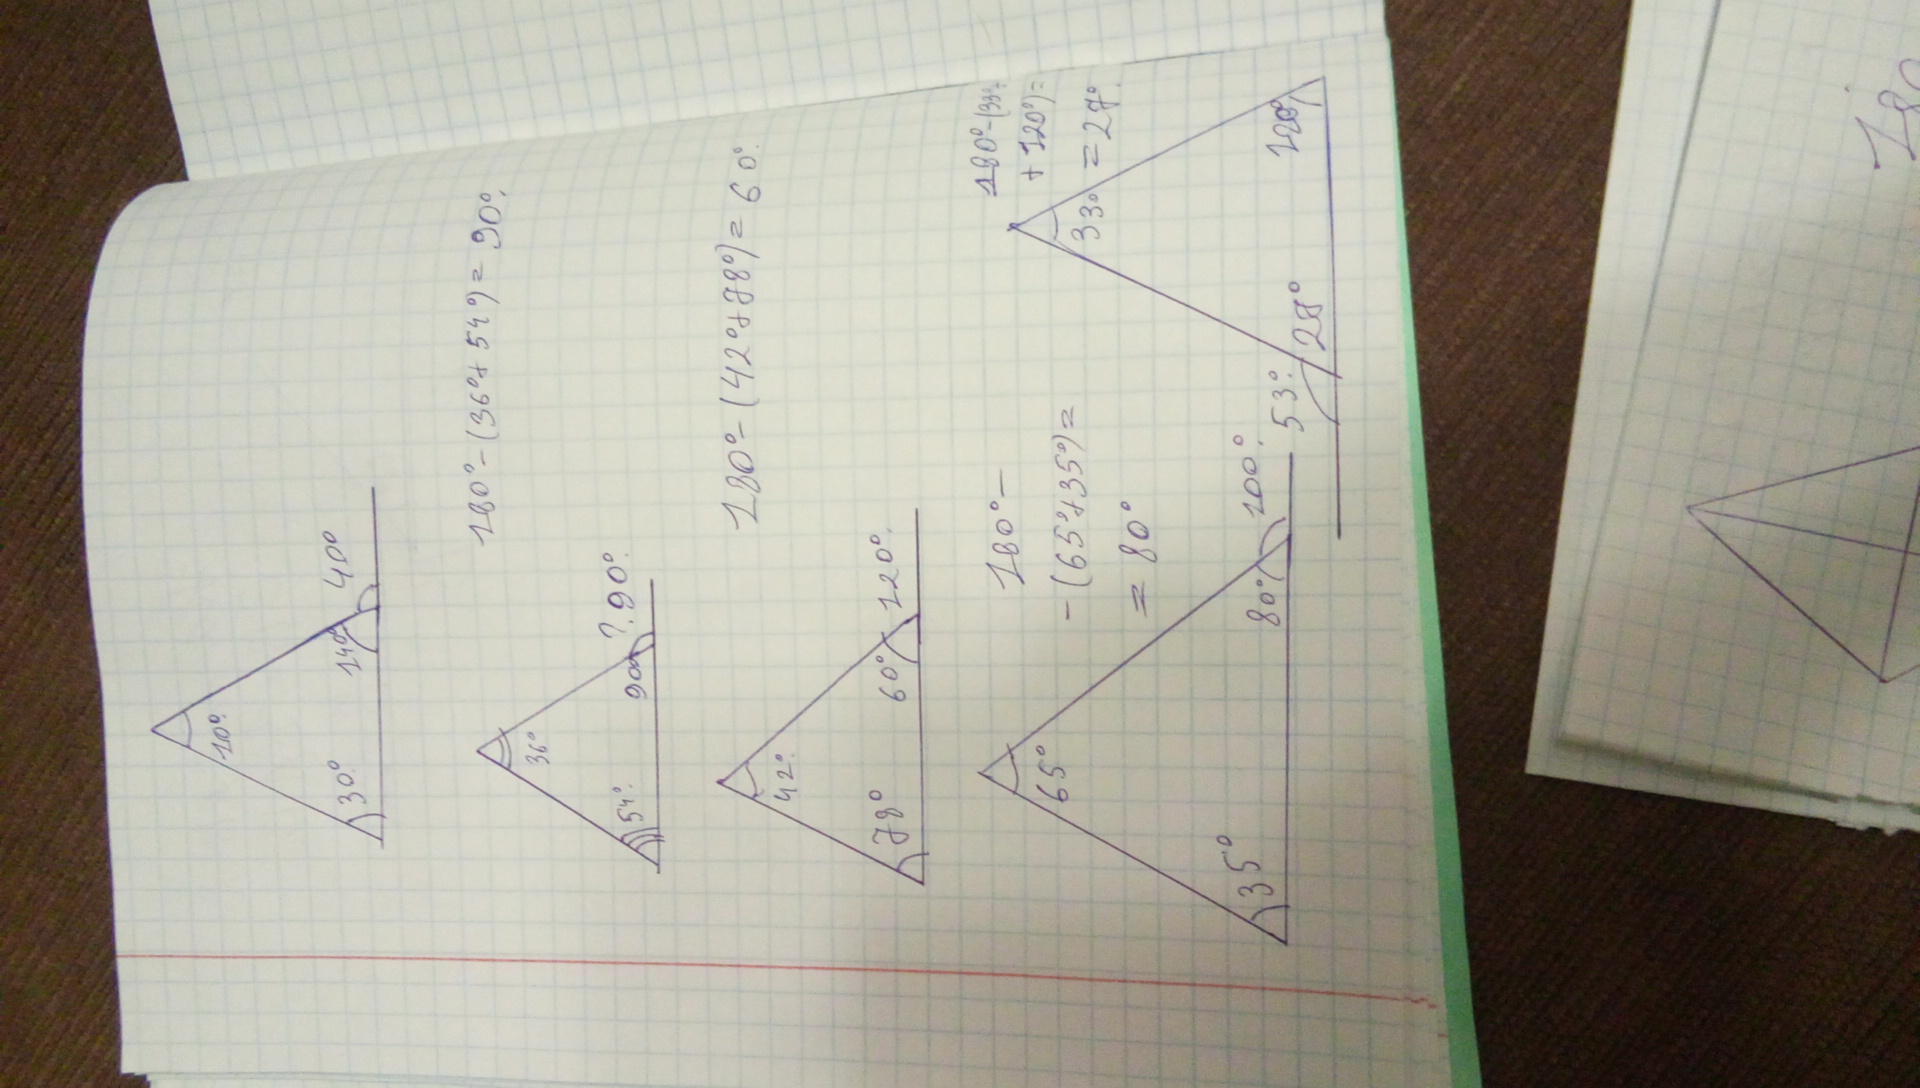 10°.
30°.
14°.
40°
180° - (36° + 54°) = 90°.
36°
54°.
90°
?. 90°.
180° - (42° + 78°) = 60°.
42°.
78°
60°
120°.
180° -
- (65° + 35°) =
= 80°
65°
35°
80°
100°.
180° - (33° +
+ 120°) =
= 27°.
33°
120°
27°
53°.
180